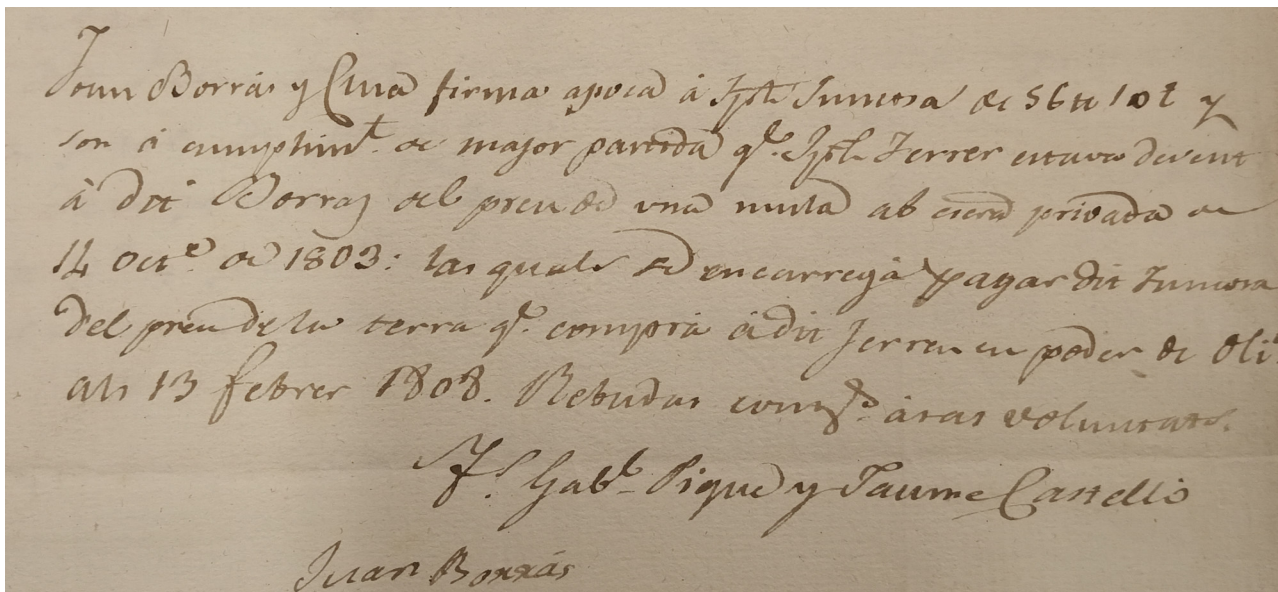 Joan Borrás y Cuná firma apoca á Jph Juncosa de 56 tt 10 ȷ y
son á cumplimt. de major partida qe. Jph Ferrer estava devent
á dit Borras del preu de una mula ab escra privada de
14 octe. de 1803: las quals se encarregá pagar dit Juncosa
del preu de la terra qe. comprá á dit Ferrer en poder de Oli
als 13 febrer 1808. Rebudas á sas voluntats.
Ts. Gabl. Piqué y Jaume Castelló
Juan Borrás